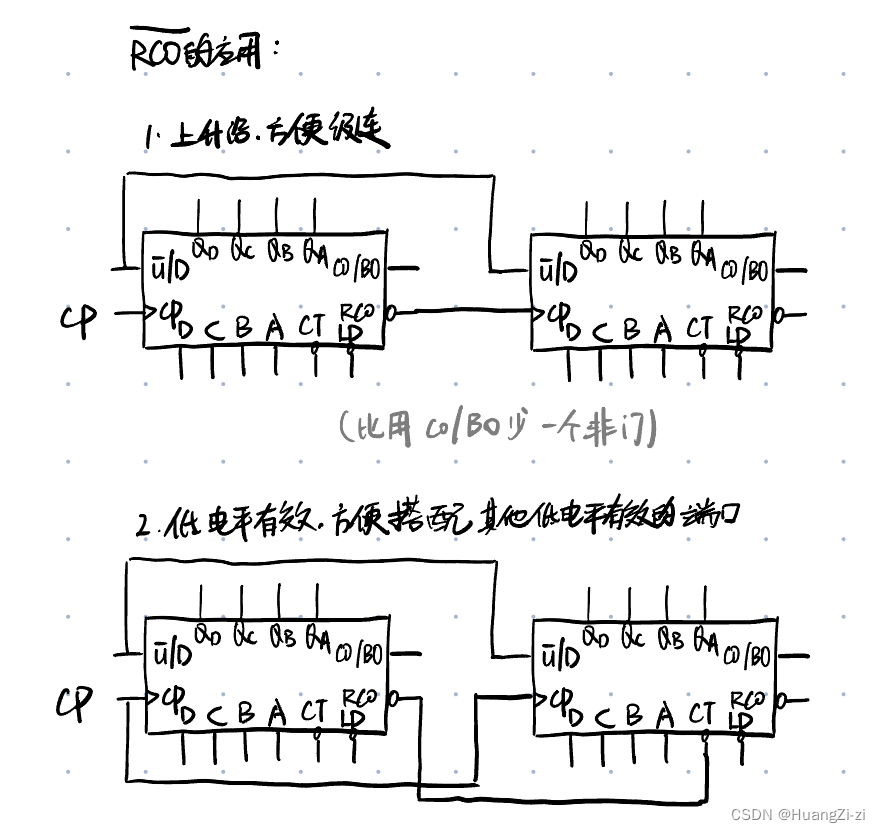 R̅C̅O̅的应用:
1. 上升沿.方便级连
U̅/D QD QC QB QA CO/BO
CP CP RCO
D C B A CT LD
U̅/D QD QC QB QA CO/BO
CP RCO
D C B A CT LD
(比用 CO/BO少一个非门)
2. 低电平有效.方便搭配其他低电平有效的端口
U̅/D QD QC QB QA CO/BO
CP CP RCO
D C B A CT LD
U̅/D QD QC QB QA CO/BO
CP RCO
D C B A CT LD
CSDN @HuangZi-zi